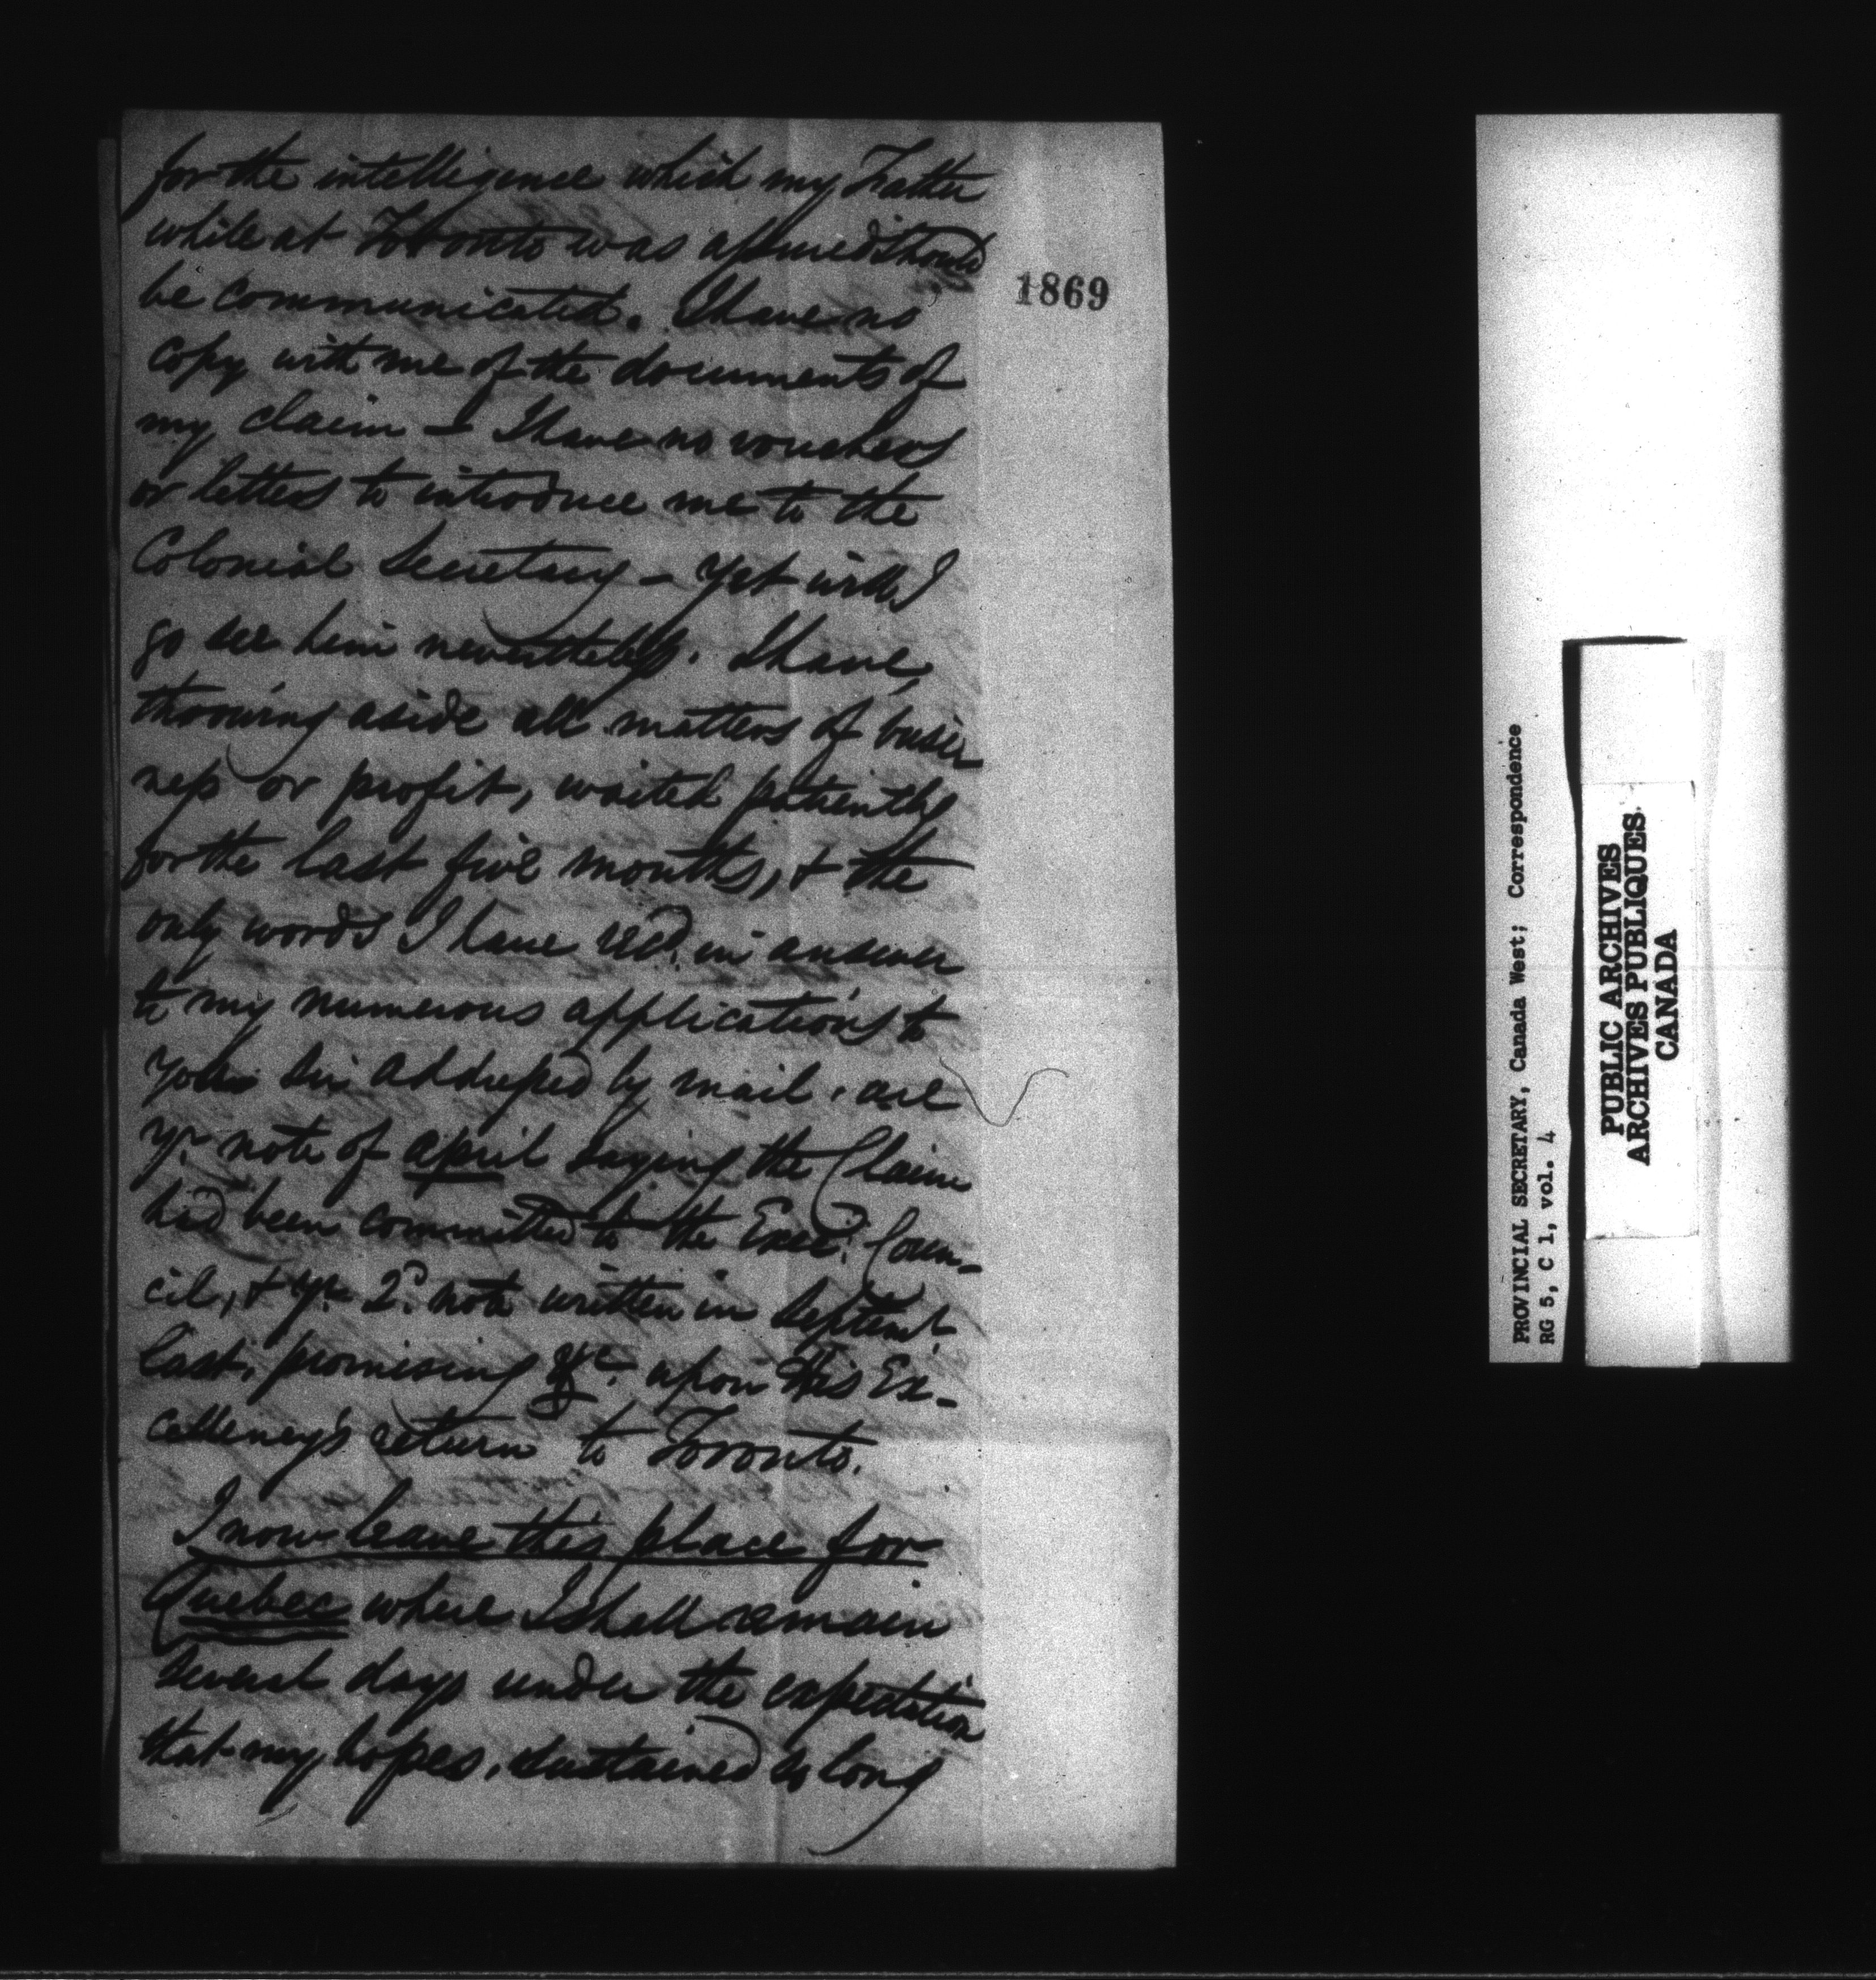 for the intelligence which my Father
while at Toronto was assured should
be communicated. I have no
copy with me of the documents of
my claim – I have no vouchers
or letters to introduce me to the
Colonial Secretary – Yet will I
go see him nevertheless. I have,
throwing aside all matters of busi-
ness or profit, waited patiently
for the last five months, & the
only words I have recd. in answer
to my numerous applications to
you Sir addressed by mail, are
yr. note of april saying the Claim
had been committed to the Exec. Coun-
cil, & yr. 2d. note written in Septembr.
last, promising &c. upon His Ex-
cellency's return to Toronto.
I now leave this place for
Quebec where I shall remain
several days under the expectation
that my hopes, sustained so long
1869
PROVINCIAL SECRETARY, Canada West; Correspondence
RG 5, C 1, vol. 4
PUBLIC ARCHIVES
ARCHIVES PUBLIQUES
CANADA